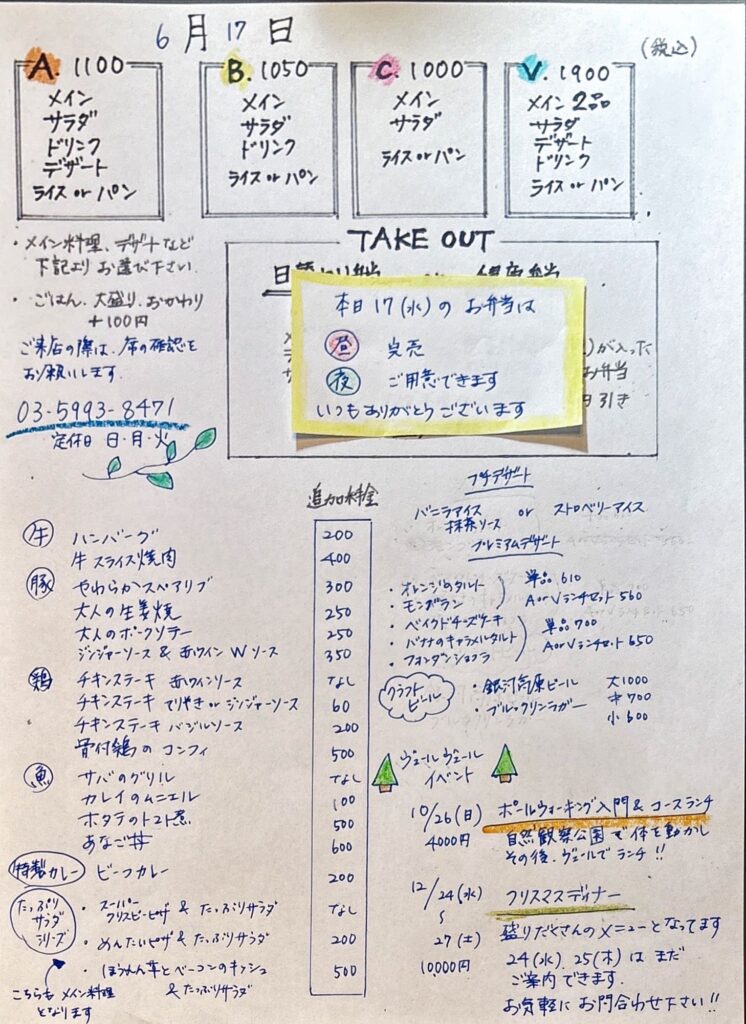 6月17日
(税込)
A. 1100
メイン
サラダ
ドリンク
デザート
ライス or パン
B. 1050
メイン
サラダ
ドリンク
ライス or パン
C. 1000
メイン
サラダ
ライス or パン
V. 1900
メイン 2品
サラダ
デザート
ドリンク
ライス or パン
・メイン料理、デザートなど
下記より お選び下さい.
・ごはん、大盛り、おかわり
+100円
ご来店の際は、席の確認を
お願いします.
03-5993-8471
定休日 日・月・火
TAKE OUT
本日 17 (水) の お弁当は
昼 完売
夜 ご用意できます
いつもありがとうございます
が入った
お弁当
引き
追加料金
牛 ハンバーグ 200
牛スライス焼肉 400
豚 やわらかスペアリブ 300
大人の生姜焼 250
大人のポークソテー 250
ジンジャーソース & 赤ワイン Wソース 350
鶏 チキンステーキ 赤ワインソース なし
チキンステーキ てりやき or ジンジャーソース 60
チキンステーキ バジルソース 200
骨付鶏の コンフィ 500
魚 サバのグリル なし
カレイのムニエル 100
ホタテのトマト煮 500
あなご丼 600
特製カレー ビーフカレー 200
たっぷりサラダシリーズ
・スーパークリスピーピザ & たっぷりサラダ なし
・めんたいピザ & たっぷりサラダ 200
・ほうれん草とベーコンのキッシュ
& たっぷりサラダ 500
こちらも メイン料理
となります
プチデザート
バニラアイス or ストロベリーアイス
抹茶ソース
プレミアムデザート
・オレンジのタルト
・モンブラン
単品 610
A or V ランチセット 560
・ベイクドチーズケーキ
・バナナのキャラメルタルト
・フォンダンショコラ
単品 700
A or V ランチセット 650
クラフトビール
・銀河高原ビール
・ブルックリンラガー
大1000
中700
小600
ヴェール ヴェール
イベント
10/26(日) ポールウォーキング入門 & コースランチ
4000円 自然観察公園で体を動かし
その後、ヴェールで ランチ!!
12/24(水) クリスマスディナー
〜
27(土) 盛りだくさんのメニューとなってます
10000円 24(水)、25(木) は まだ
ご案内できます.
お気軽に お問合わせ下さい!!